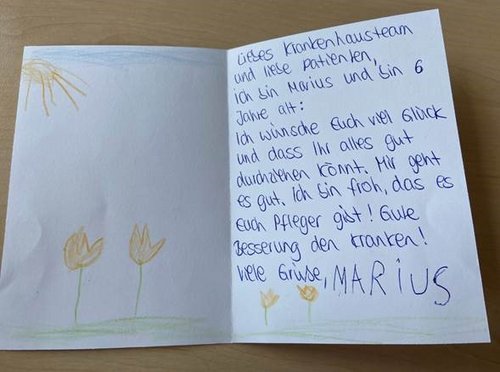 Liebes Krankenhausteam
und liebe Patienten,
ich bin Marius und bin 6
Jahre alt:
Ich wünsche Euch viel Glück
und dass Ihr alles gut
durchziehen könnt. Mir geht
es gut. Ich bin froh, das es
Euch Pfleger gibt! Gute
Besserung den Kranken!
Viele Grüße, MARIUS